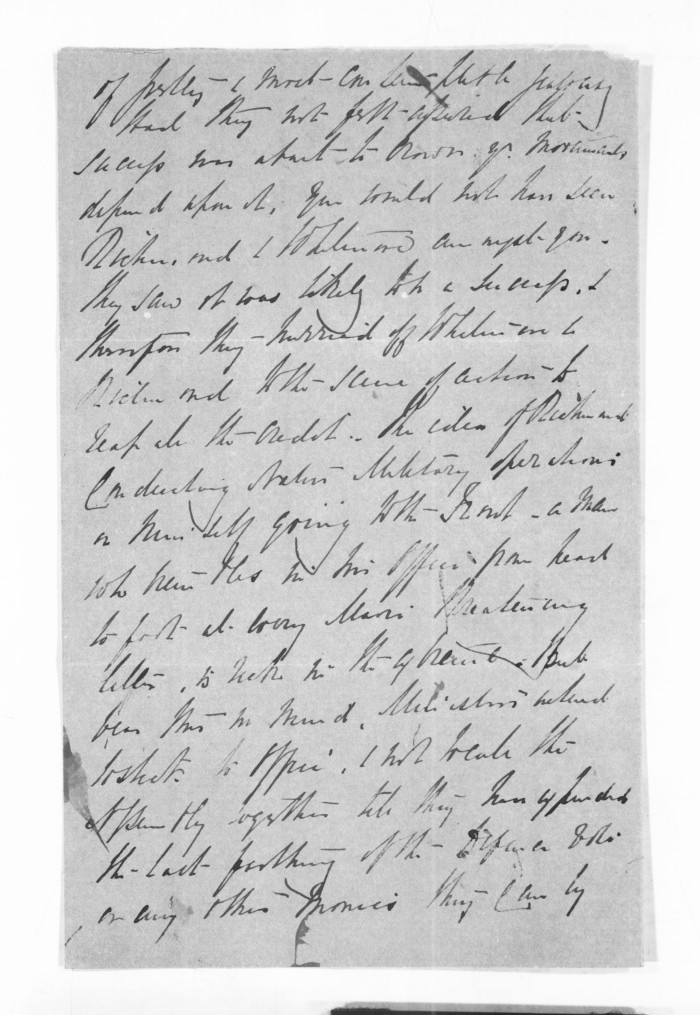 of festly & most contemptible jealousy
Had they not felt assured that
success was about to crown yr. movements
depend upon it, you would not have seen
Richmond & Whitmore am
they saw it was likely to be a success, &
therefore they hurried off Whitmore &
Richmond to the scene of action to
reap all the credit. The idea of Richmond
Conducting Native Military operations
or himself going to the Front - a man
who trembles in his Office from head
to foot at every Maori threatening
letter, is in the extreme. But
bear this in mind, Ministers intend
to stick to Office, & not to call the
Assembly together till they have expended
the last farthing of the Defence Vote
or any other monies they can by